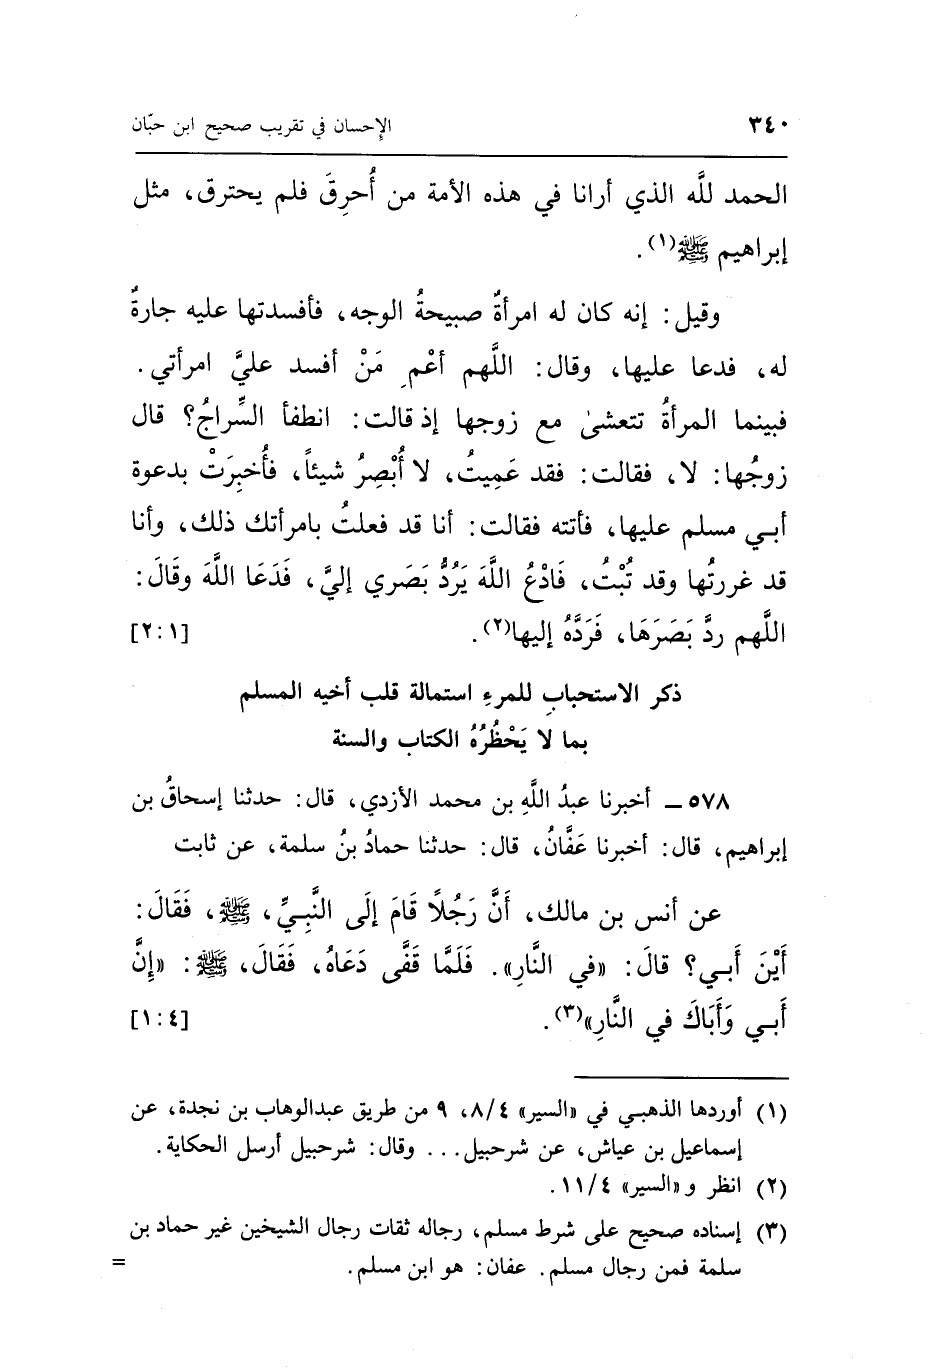 ٣٤٠ الإحسان في تقريب صحيح ابن حبّان
الحمد للَّه الذي أرانا في هذه الأمة من أُحرِقَ فلم يحترق، مثل
إبراهيم ﷺ(١).
وقيل: إنه كان له امرأةٌ صبيحةُ الوجه، فأفسدتها عليه جارةٌ
له، فدعا عليها، وقال: اللَّهم أعْمِ مَنْ أفسد عليَّ امرأتي.
فبينما المرأةُ تتعشىٰ مع زوجها إذ قالت: انطفأ السِّراجُ؟ قال
زوجُها: لا، فقالت: فقد عَمِيتُ، لا أُبْصِرُ شيئاً، فأُخبِرَتْ بدعوة
أبي مسلم عليها، فأتته فقالت: أنا قد فعلتُ بامرأتك ذلك، وأنا
قد غررتُها وقد تُبْتُ، فَادْعُ اللَّهَ يَرُدُّ بَصَري إليَّ، فَدَعَا اللَّهَ وقَالَ:
اللَّهم ردَّ بَصَرَهَا، فَرَدَّهُ إليها(٢). [٢:١]
ذكر الاستحبابِ للمرءِ استمالة قلب أخيه المسلم
بما لا يَحْظُرُهُ الكتاب والسنة
٥٧٨ ـ أخبرنا عبدُ اللَّهِ بن محمد الأزدي، قال: حدثنا إسحاقُ بن
إبراهيم، قال: أخبرنا عَفَّانُ، قال: حدثنا حمادُ بنُ سلمة، عن ثابت
عن أنس بن مالك، أَنَّ رَجُلًا قَامَ إلَى النَّبِيِّ، ﷺ، فَقَالَ:
أَيْنَ أَبي؟ قالَ: «في النَّارِ». فَلَمَّا قَفَّى دَعَاهُ، فَقَالَ، ﷺ: «إنَّ
أَبي وَأَبَاكَ في النَّارِ»(٣). [١:٤]
(١) أوردها الذهبي في «السير» ٨/٤، ٩ من طريق عبدالوهاب بن نجدة، عن
إسماعيل بن عياش، عن شرحبيل... وقال: شرحبيل أرسل الحكاية.
(٢) انظر و«السير» ١١/٤.
(٣) إسناده صحيح على شرط مسلم، رجاله ثقات رجال الشيخين غير حماد بن
سلمة فمن رجال مسلم. عفان: هو ابن مسلم. =